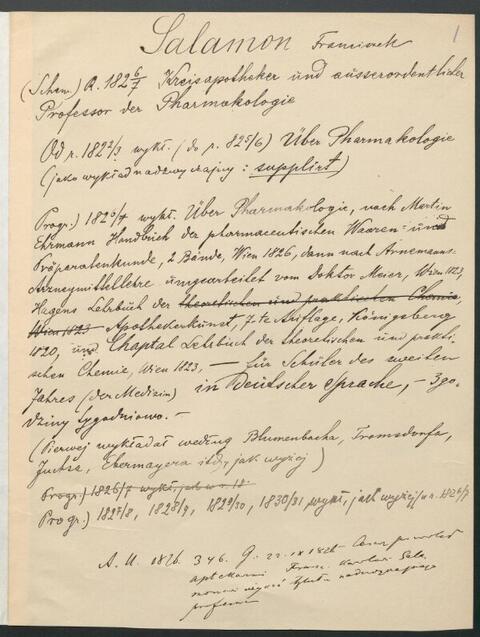 1
Salamon Franciszek
(Schem.) R. 1826/7 Kreisapotheker und ausserordentlicher
Professor der Pharmakologie
Od r. 1822/3 wykł. (do r. 825/6) Über Pharmakologie
(jako wykład nadzwyczajny: supplirt)
Progr.) 1826/7 wykł. Über Pharmakologie, nach Martin
Ehrmann Handbuch der pharmaceutischen Waaren- und
Präparatenkunde, 2 Bände, Wien 1826, dann nach Arnemanns
Arzneymittellehre umgearbeitet vom Doktor Meier, Wien 1823,
Hagens Lehrbuch der theoretischen und praktischen Chemie,
Wien 1823 Apothekerkunst, 7-te Auflage, Königsberg
1820, und Chaptal Lehrbuch der theoretischen und prakti-
schen Chemie, Wien 1823, — für Schüler des zweiten
Jahres (der Medizin) in Deutscher Sprache, — 3 go-
dziny tygodniowo. —
(Pierwej wykładał według Blumenbacha, Tromsdorfa,
Jucha, Ebermayera itd, jak wyżej)
Progr.) 1826/7 wykł. jak w r. 18
Progr.) 1827/8, 1828/9, 1829/30, 1830/31 wykł. jak wyżej w r. 1826/7
A. U. 1826. 346. G. 22. IX 1826
aptekarzowi Franc. Sala-
monowi tytułu nadzwyczajnego
profesora